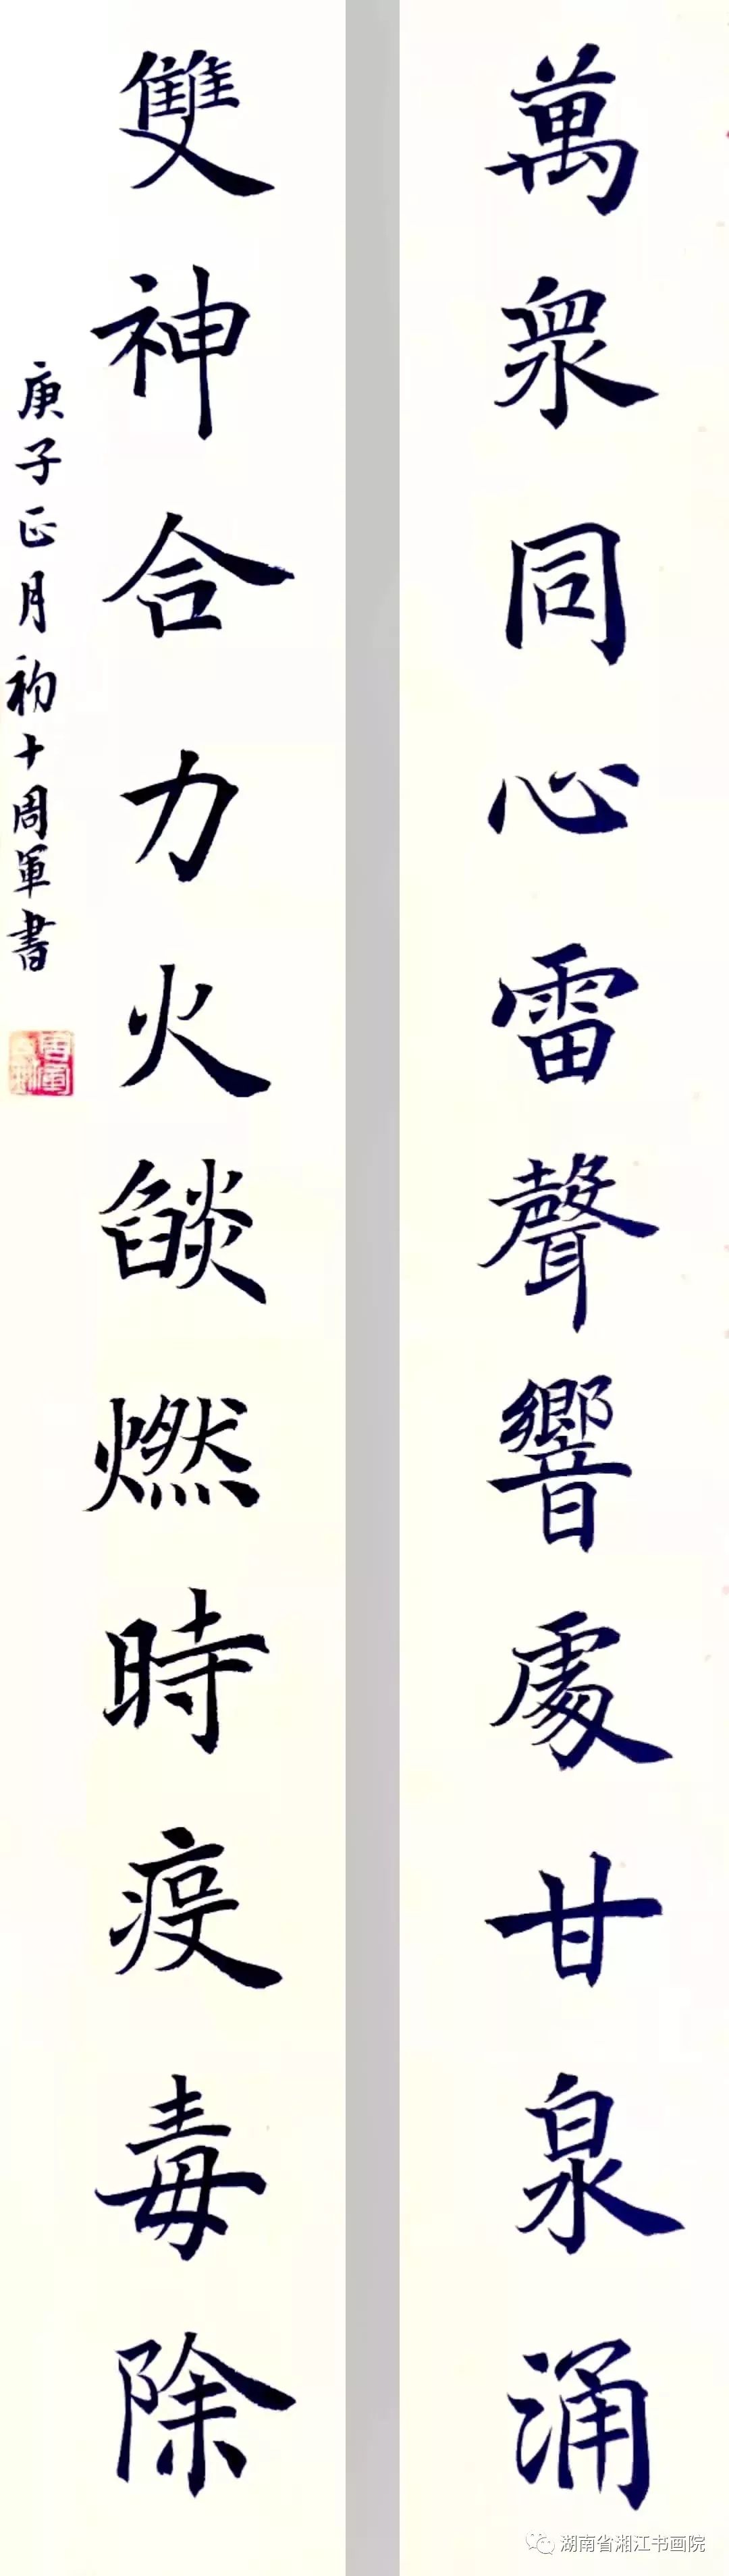 萬衆同心雷聲響處甘泉涌
雙神合力火燄燃時疫毒除
庚子正月初十周軍書
湖南省湘江书画院